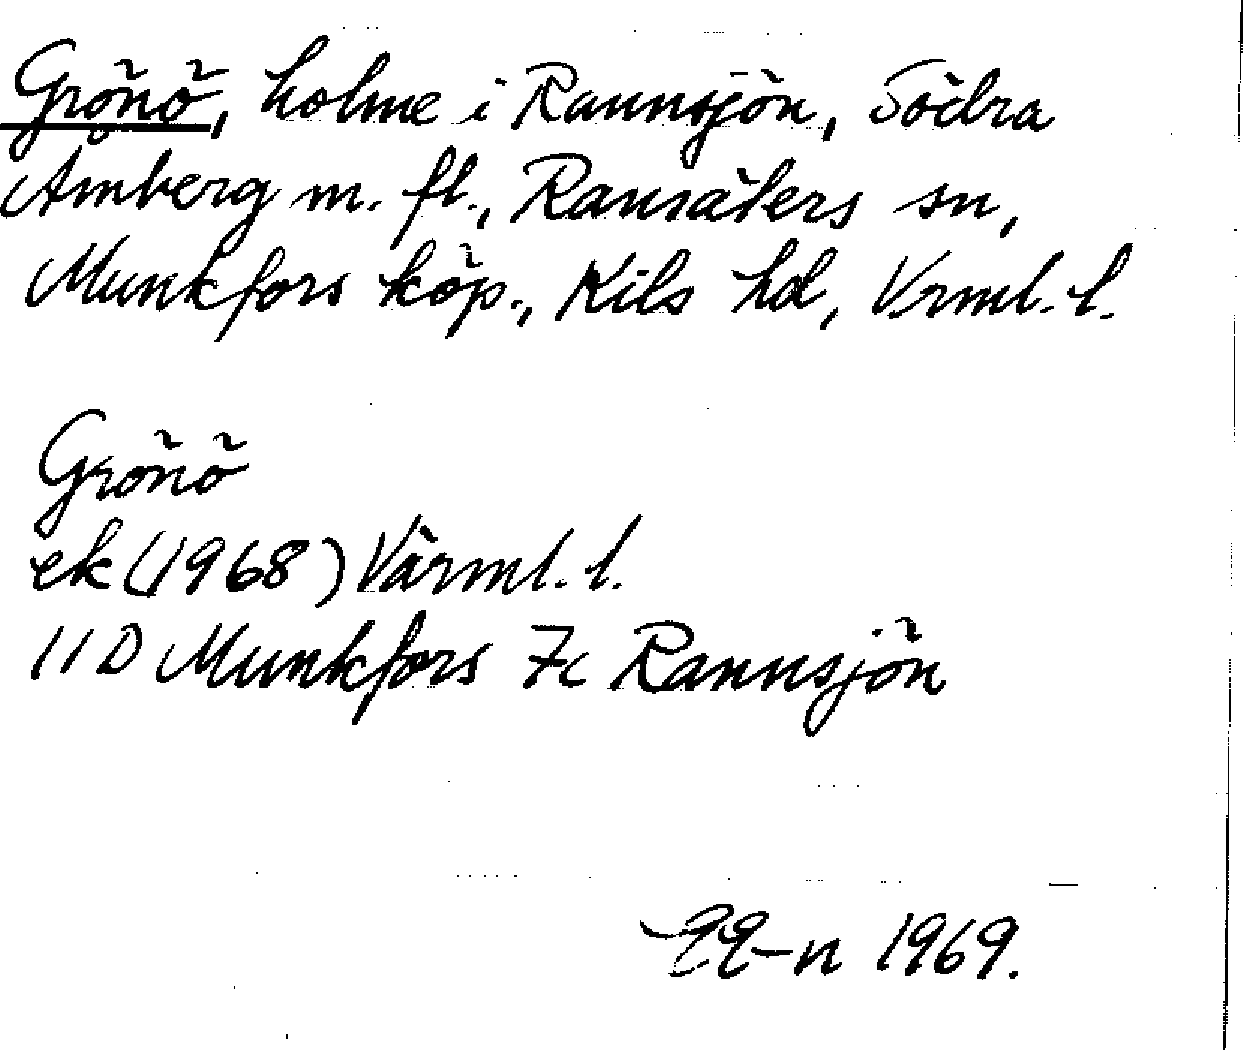 Grönö, holme i Rannsjön, Södra
Åmberg m. fl., Ransäters sn,
Munkfors köp., Kils hd, Vrml. l.
Grönö
ek (1968) Värml. l.
11D Munkfors 7c Rannsjön
1969.